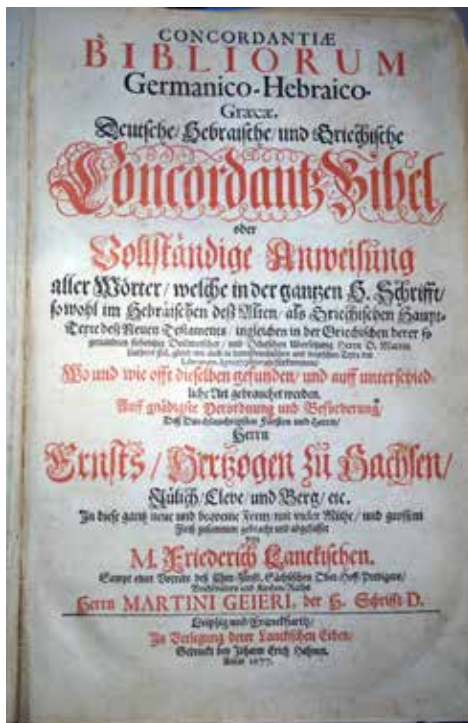 CONCORDANTIÆ
BIBLIORUM
Germanico-Hebraico-
Græcæ.
Deutsche/ Hebraische/ und Griechische
Concordantz-Bibel
oder
Vollständige Anweisung
aller Wörter/ welche in der gantzen H. Schrifft/
so wohl im Hebräischen deß Alten/ als Griechischen Haupt-
Texte deß Neuen Testaments/ ingleichen in der Griechischen derer so
genandten siebentzig Dolmetscher/ und Deutschen Ubersetzung Herrn D. Martin
Wo und wie offt dieselben gefunden/ und auff unterschied-
liche Art gebrauchet werden.
Auff gnädigste Verordnung und Beförderung/
Deß Durchlauchtigsten Fürsten und Herrn/
Herrn
Ernsts/ Hertzogen zu Sachsen/
Jülich/ Cleve und Berg/ etc.
In diese gantz neue und bequeme Form mit vieler Mühe/ und grossem
Fleiß zusammen gebracht und abgefasset
von
M. Friederich Lanckischen.
Sampt einer Vorrede deß Chur-Fürstl. Sächsischen Ober-Hoff-Predigers/
Beichtvaters und Kirchen-Raths
Herrn MARTINI GEIERI, der H. Schrifft D.
Leipzig und Franckfurth/
In Verlegung derer Lanckischen Erben/
Gedruckt bey Johann Erich Hahnen.
Anno 1677.